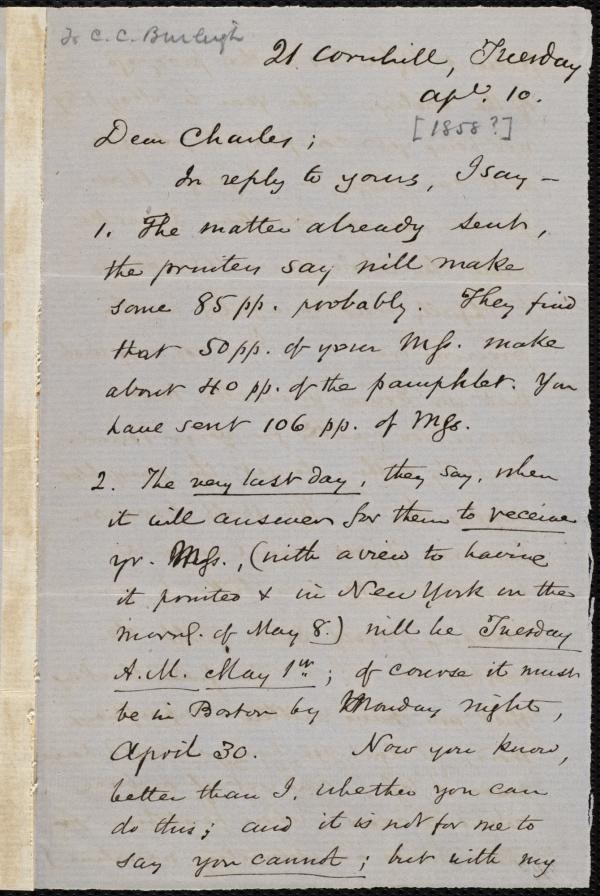 To C. C. Burleigh
21 Cornhill, Tuesday
Apl. 10.
[1858?]
Dear Charles;
In reply to yours, I say —
1. The matter already sent,
the printers say will make
some 85 pp. probably. They find
that 50 pp. of your Mss. make
about 40 pp. of the pamphlet. You
have sent 106 pp. of Mss.
2. The very last day, they say, when
it will answer for them to receive
yr. Mss., (with a view to having
it printed & in New York on the
morng. of May 8.) will be Tuesday
A.M. May 1st; of course it must
be in Boston by Monday night,
April 30. Now you know,
better than I, whether you can
do this; and it is not for me to
say you cannot; but with my